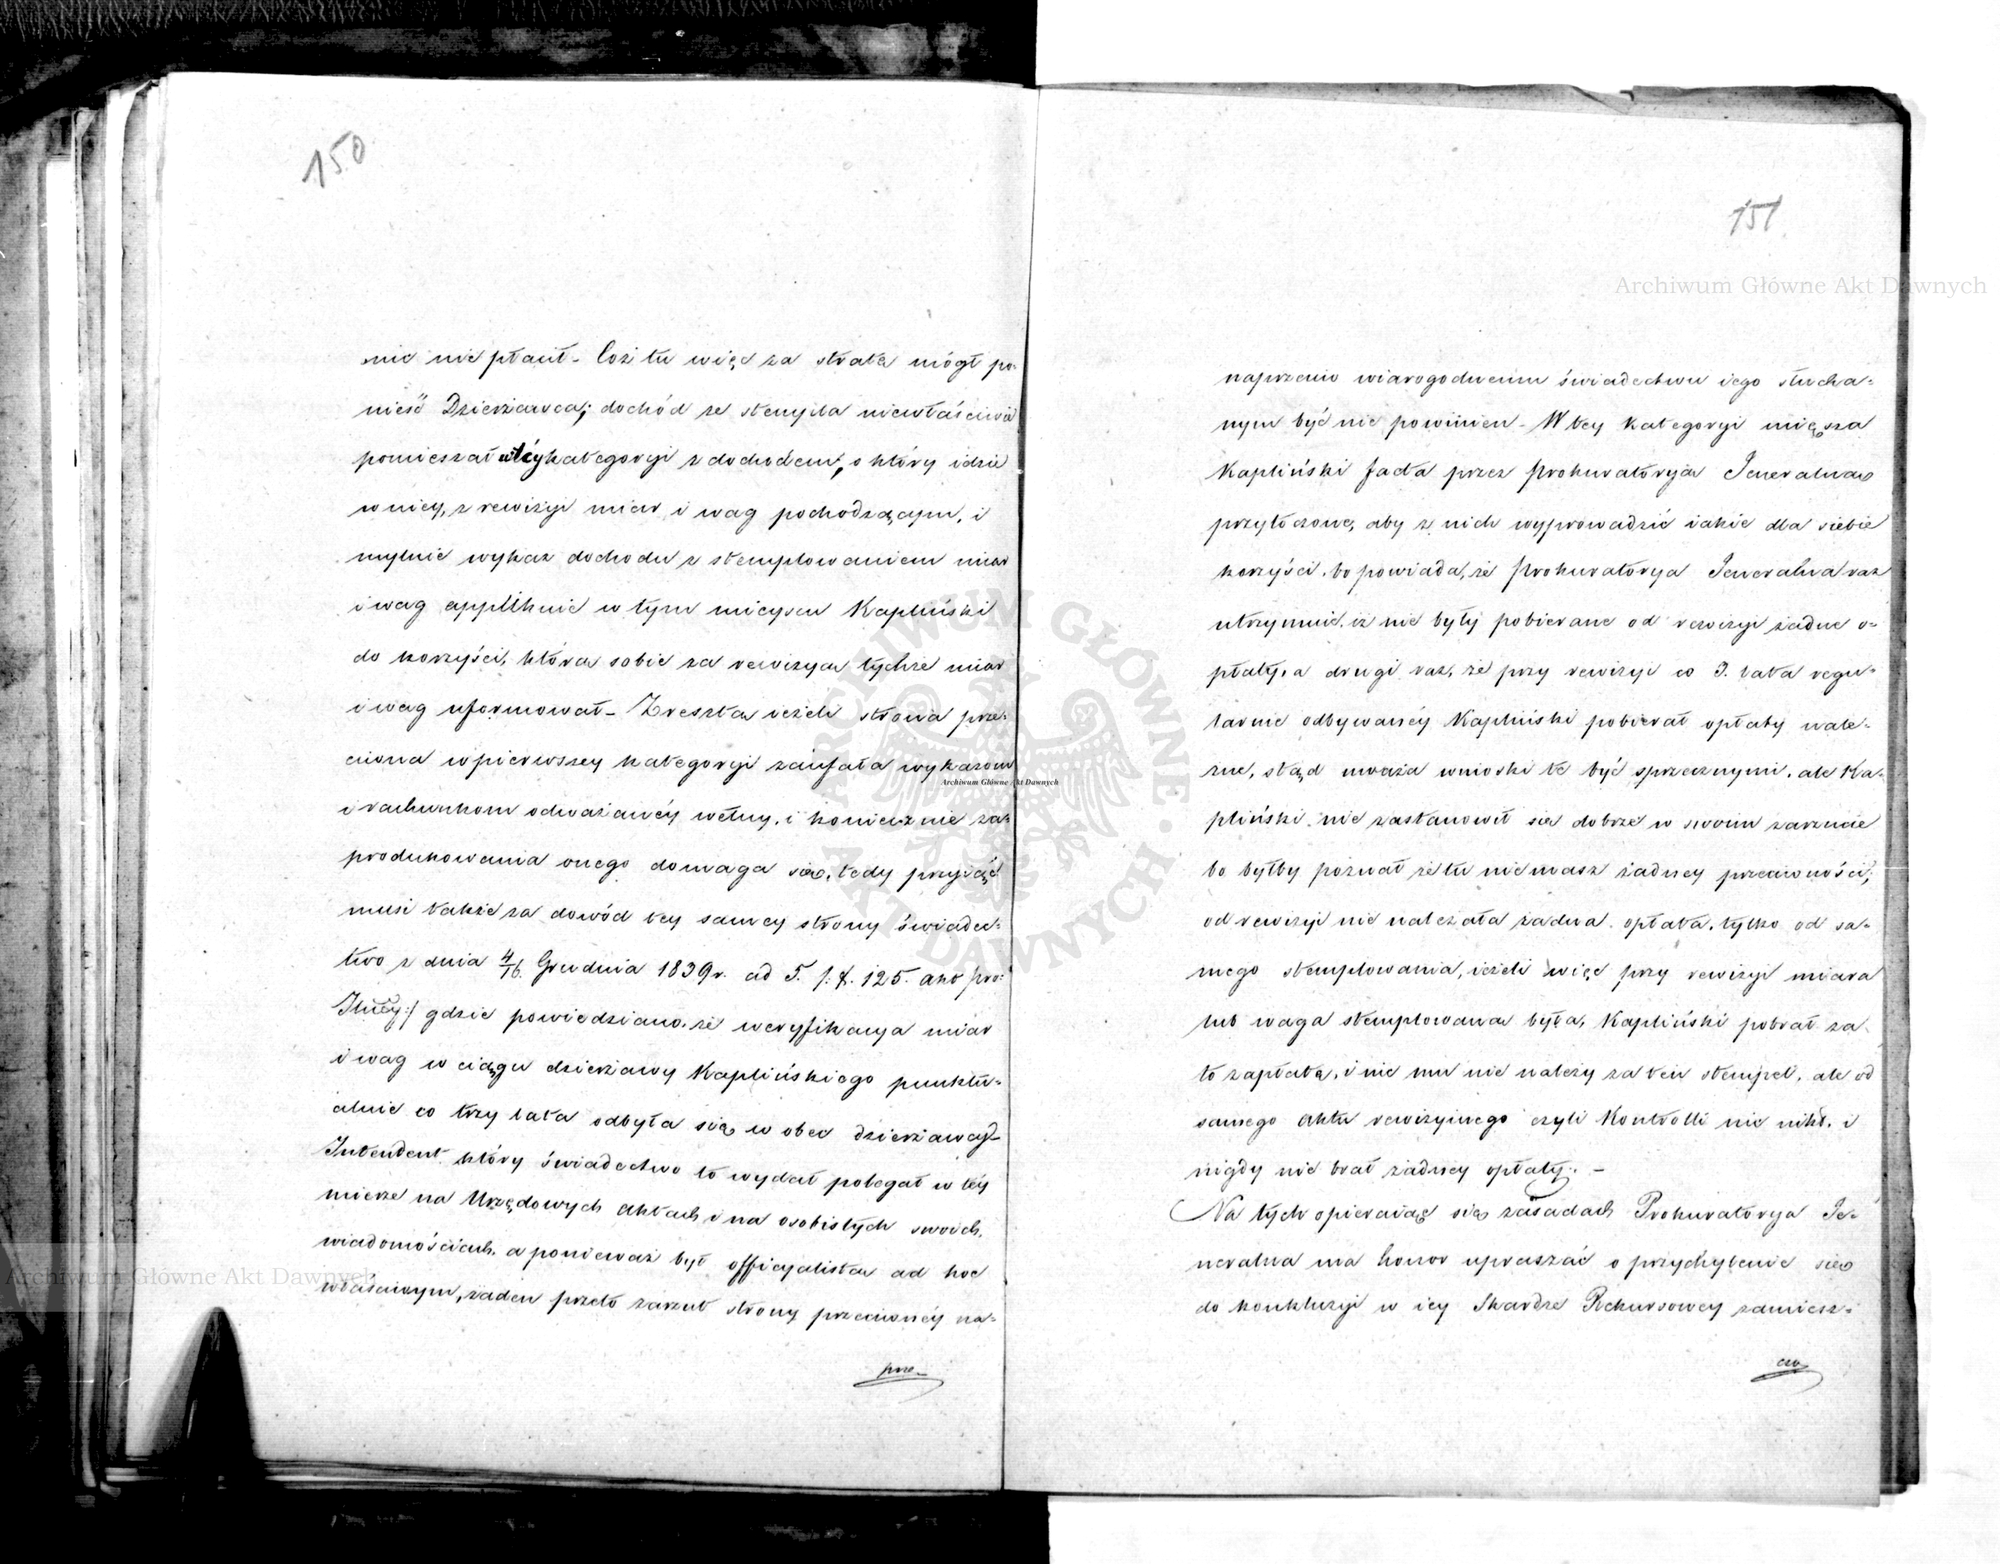 150
nic nie płacił - Cóż tu więc za stratę mógł po-
nieść Dzierżawca; dochód ze stempla niewłaściwie
pomieszał w téy kategoryi z dochodem, o który idzie
w niéy, z rewizyi miar i wag pochodzącym, i
mylnie wykaz dochodu z stemplowaniem miar
i wag applikuie w tym mieyscu Kapliński
do korzyści, którą sobie za rewizyą tychże miar
i wag uformował - Zresztą ieżeli strona prze-
ciwna w pierwszey kategoryi zaufała wykazom
i rachunkom odważanéy wełny, i koniecznie za-
produkowania onego domaga się, tedy przyiąć
musi także za dowód tey samey strony świadec-
two z dnia 4/16 Grudnia 1839 r. ad 5. /: f. 125. akt pro:
Iłłcey :/ gdzie powiedziano, że weryfikacya miar
i wag w ciągu dzierżawy Kaplińskiego punktu-
alnie co trzy lata odbyła się w obec dzierżawcy
Intendent który świadectwo to wydał polegał w téy
mierze na Urzędowych aktach i na osobistych swoich
wiadomościach, a ponieważ był officyalistą ad hoc
właściwym, żaden przeto zarzut strony przeciwnéy na-
prze-
151
Archiwum Główne Akt Dawnych
naprzeciw wiarogodnemu świadectwu iego słucha-
nym być nie powinien - W tey kategoryi mięsza
Kapliński facta przez Prokuratoryą Jeneralną
przytoczone, aby z nich wyprowadzić iakie dla siebie
korzyści, bo powiada, że Prokuratorya Jeneralna raz
utrzymuie, iż nie były pobierane od rewizyi żadne o-
płaty, a drugi raz, że przy rewizyi co 3. lata regu-
larnie odbywanéy Kapliński pobierał opłaty nale-
żne, stąd uważa wnioski te być sprzecznymi, ale Ka-
pliński nie zastanowił się dobrze w swoim zarzucie
bo byłby poznał że tu nie masz żadney przeciwności;
od rewizyi nie należała żadna opłata, tylko od sa-
mego stemplowania, ieżeli więc przy rewizyi miara
lub waga stemplowana była, Kapliński pobrał za
to zapłatę, i nic mu nie należy za ten stempel, ale od
samego aktu rewizyinego czyli Kontrolli nic nikt, i
nigdy nie brał żadney opłaty. -
Na tych opieraiąc się zasadach Prokuratorya Je-
neralna ma honor upraszać o przychylenie się
do konkluzyi w iey Skardze Rekursowey zamiesz-
czo
Archiwum Główne Akt Dawnych
Archiwum Główne Akt Dawnych
ARCHIWUM GŁÓWNE AKT DAWNYCH